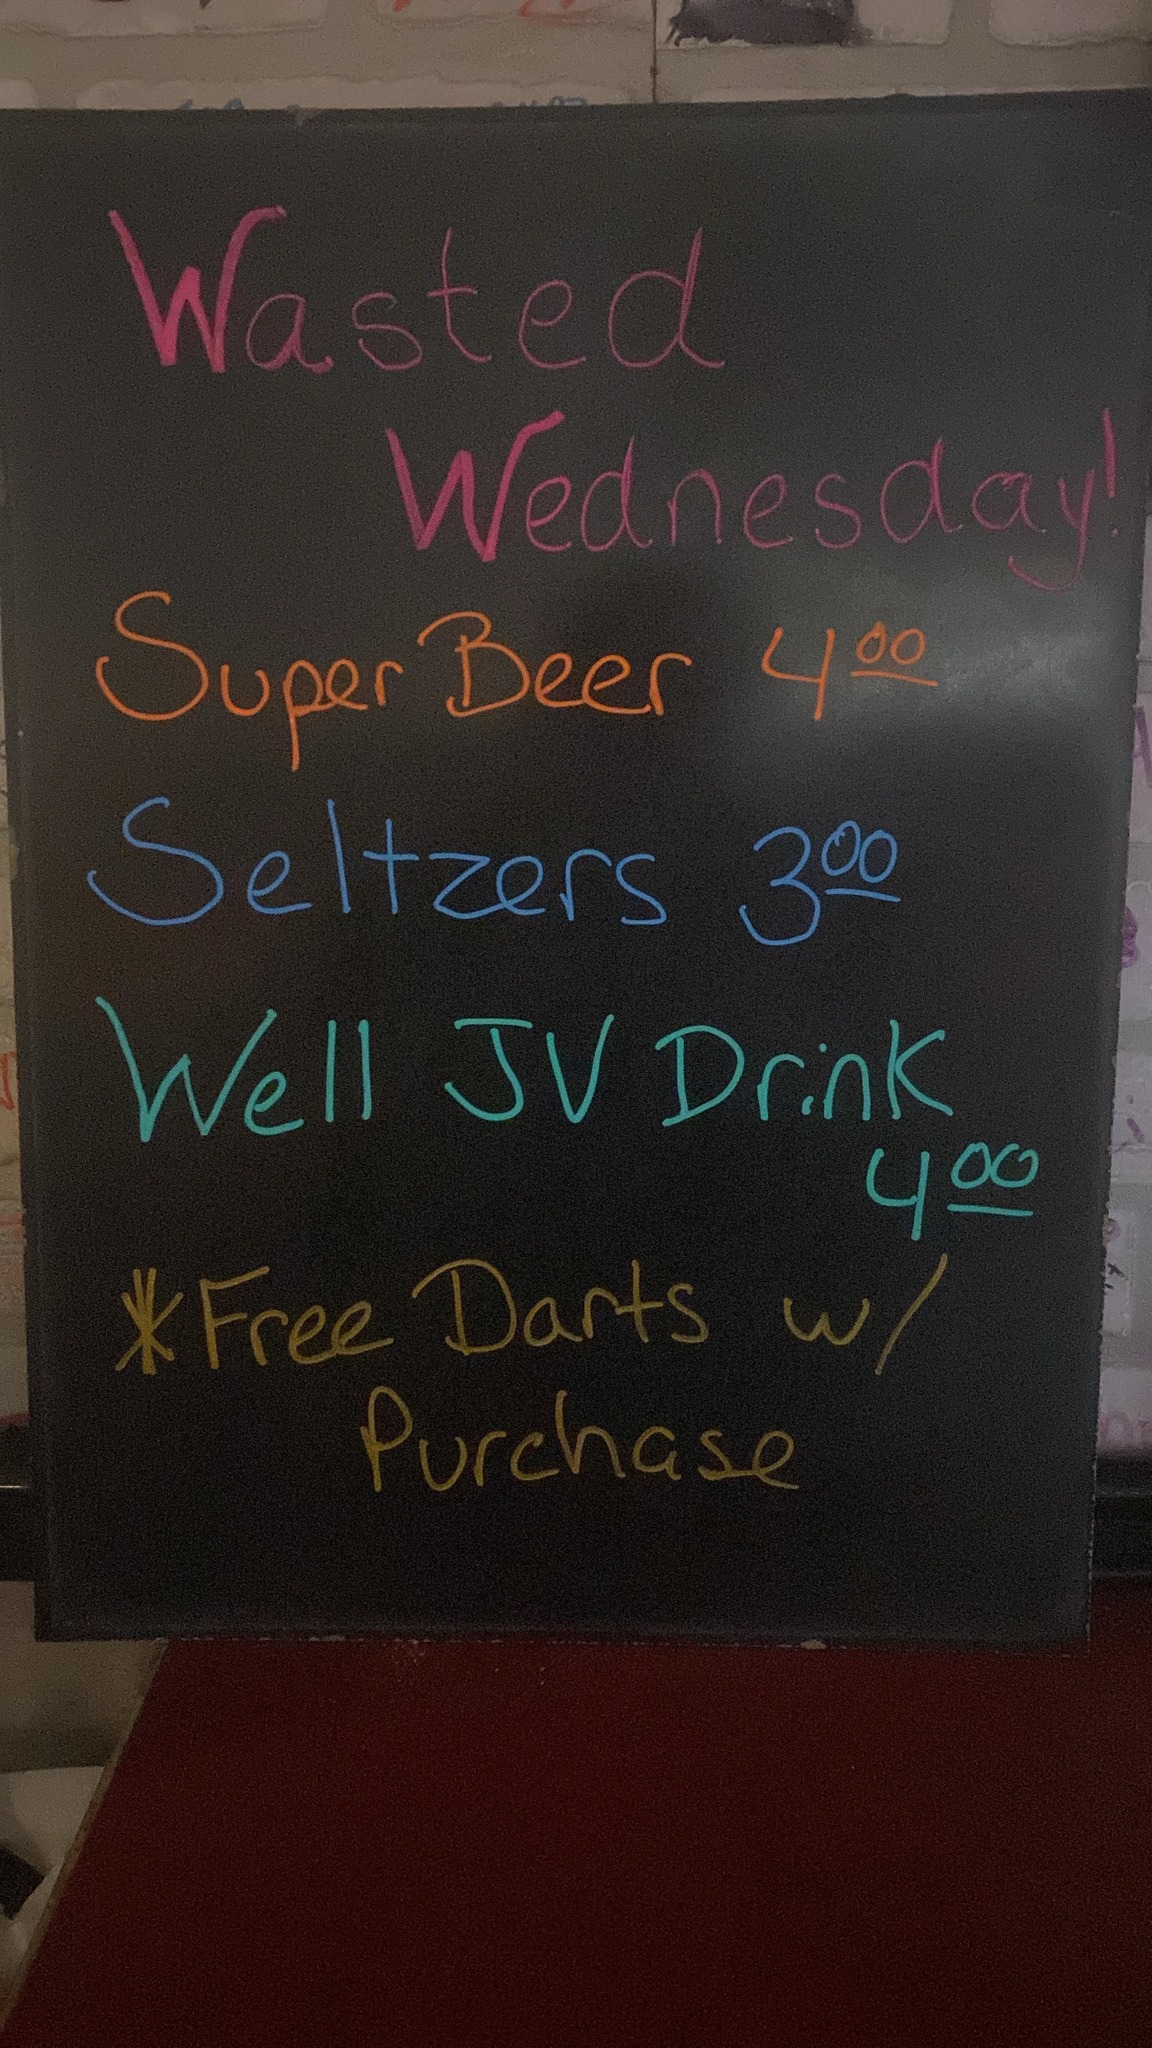 Wasted
Wednesday!
Super Beer 400
Seltzers 300
Well JV Drink
400
*Free Darts w/
Purchase